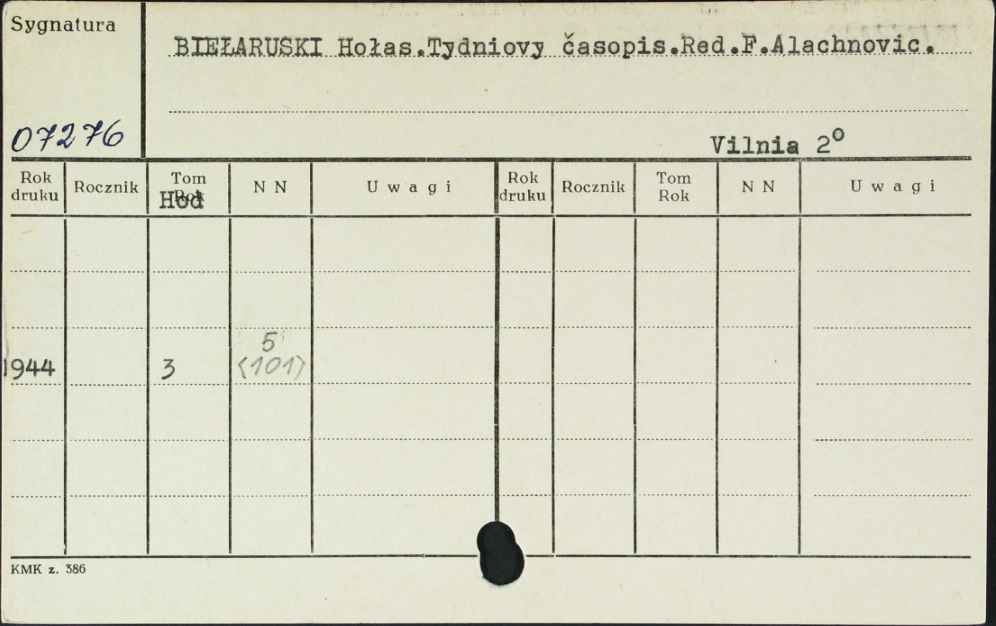 Sygnatura
BIEŁARUSKI Hołas.Tydniovy časopis.Red.F.Alachnovic.
07276
Vilnia 2º
Rok druku Rocznik Tom Rok N N Uwagi Rok druku Rocznik Tom Rok N N Uwagi
Hod
5
1944 3 (101)
KMK z. 386